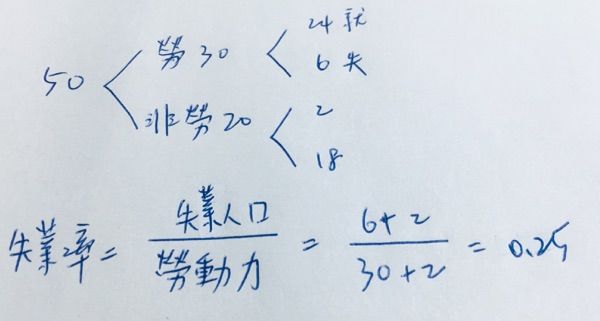 24就
勞30
50
6失
非勞20
2
18
失業率 = 失業人口 / 勞動力 = 6+2 / 30+2 = 0.25